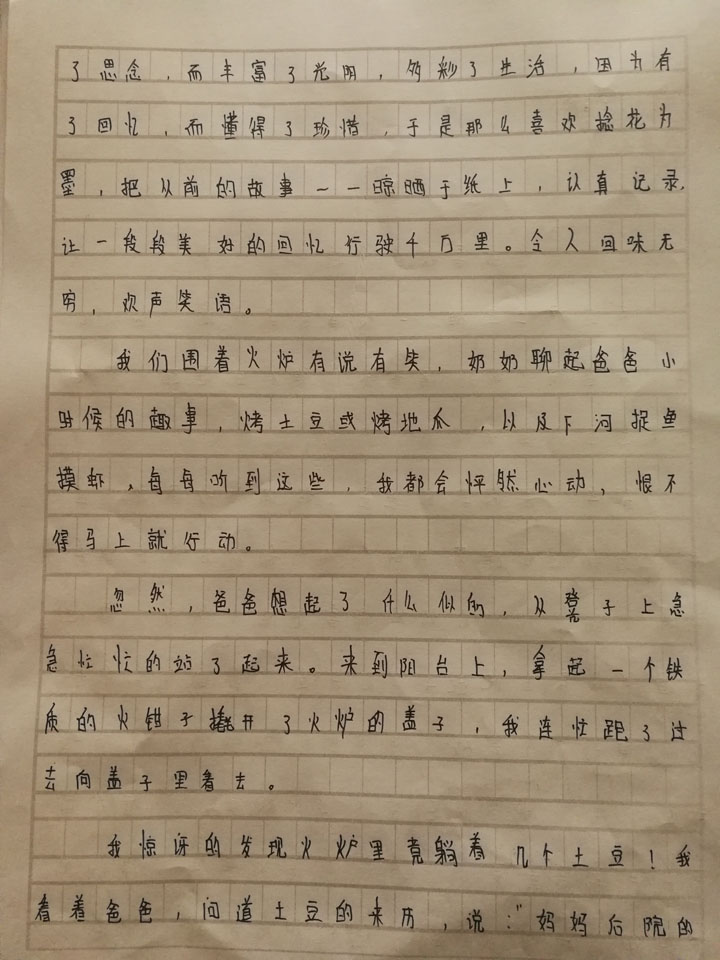 了思念，而丰富了光阴，多彩了生活，因为有
了回忆，而懂得了珍惜，于是那么喜欢捻花为
墨，把从前的故事一一晾晒于纸上，认真记录，
让一段段美好的回忆行驶千万里。令人回味无
穷，欢声笑语。
我们围着火炉有说有笑，奶奶聊起爸爸小
时候的趣事，烤土豆或烤地瓜，以及下河捉鱼
摸虾，每每听到这些，我都会怦然心动，恨不
得马上就行动。
忽然，爸爸想起了什么似的，从凳子上急
急忙忙的站了起来。来到阳台上，拿起一个铁
质的火钳子撬开了火炉的盖子，我连忙跑了过
去向盖子里看去。
我惊讶的发现火炉里竟躺着几个土豆！我
看着爸爸，问道土豆的来历，说：“妈妈后院的